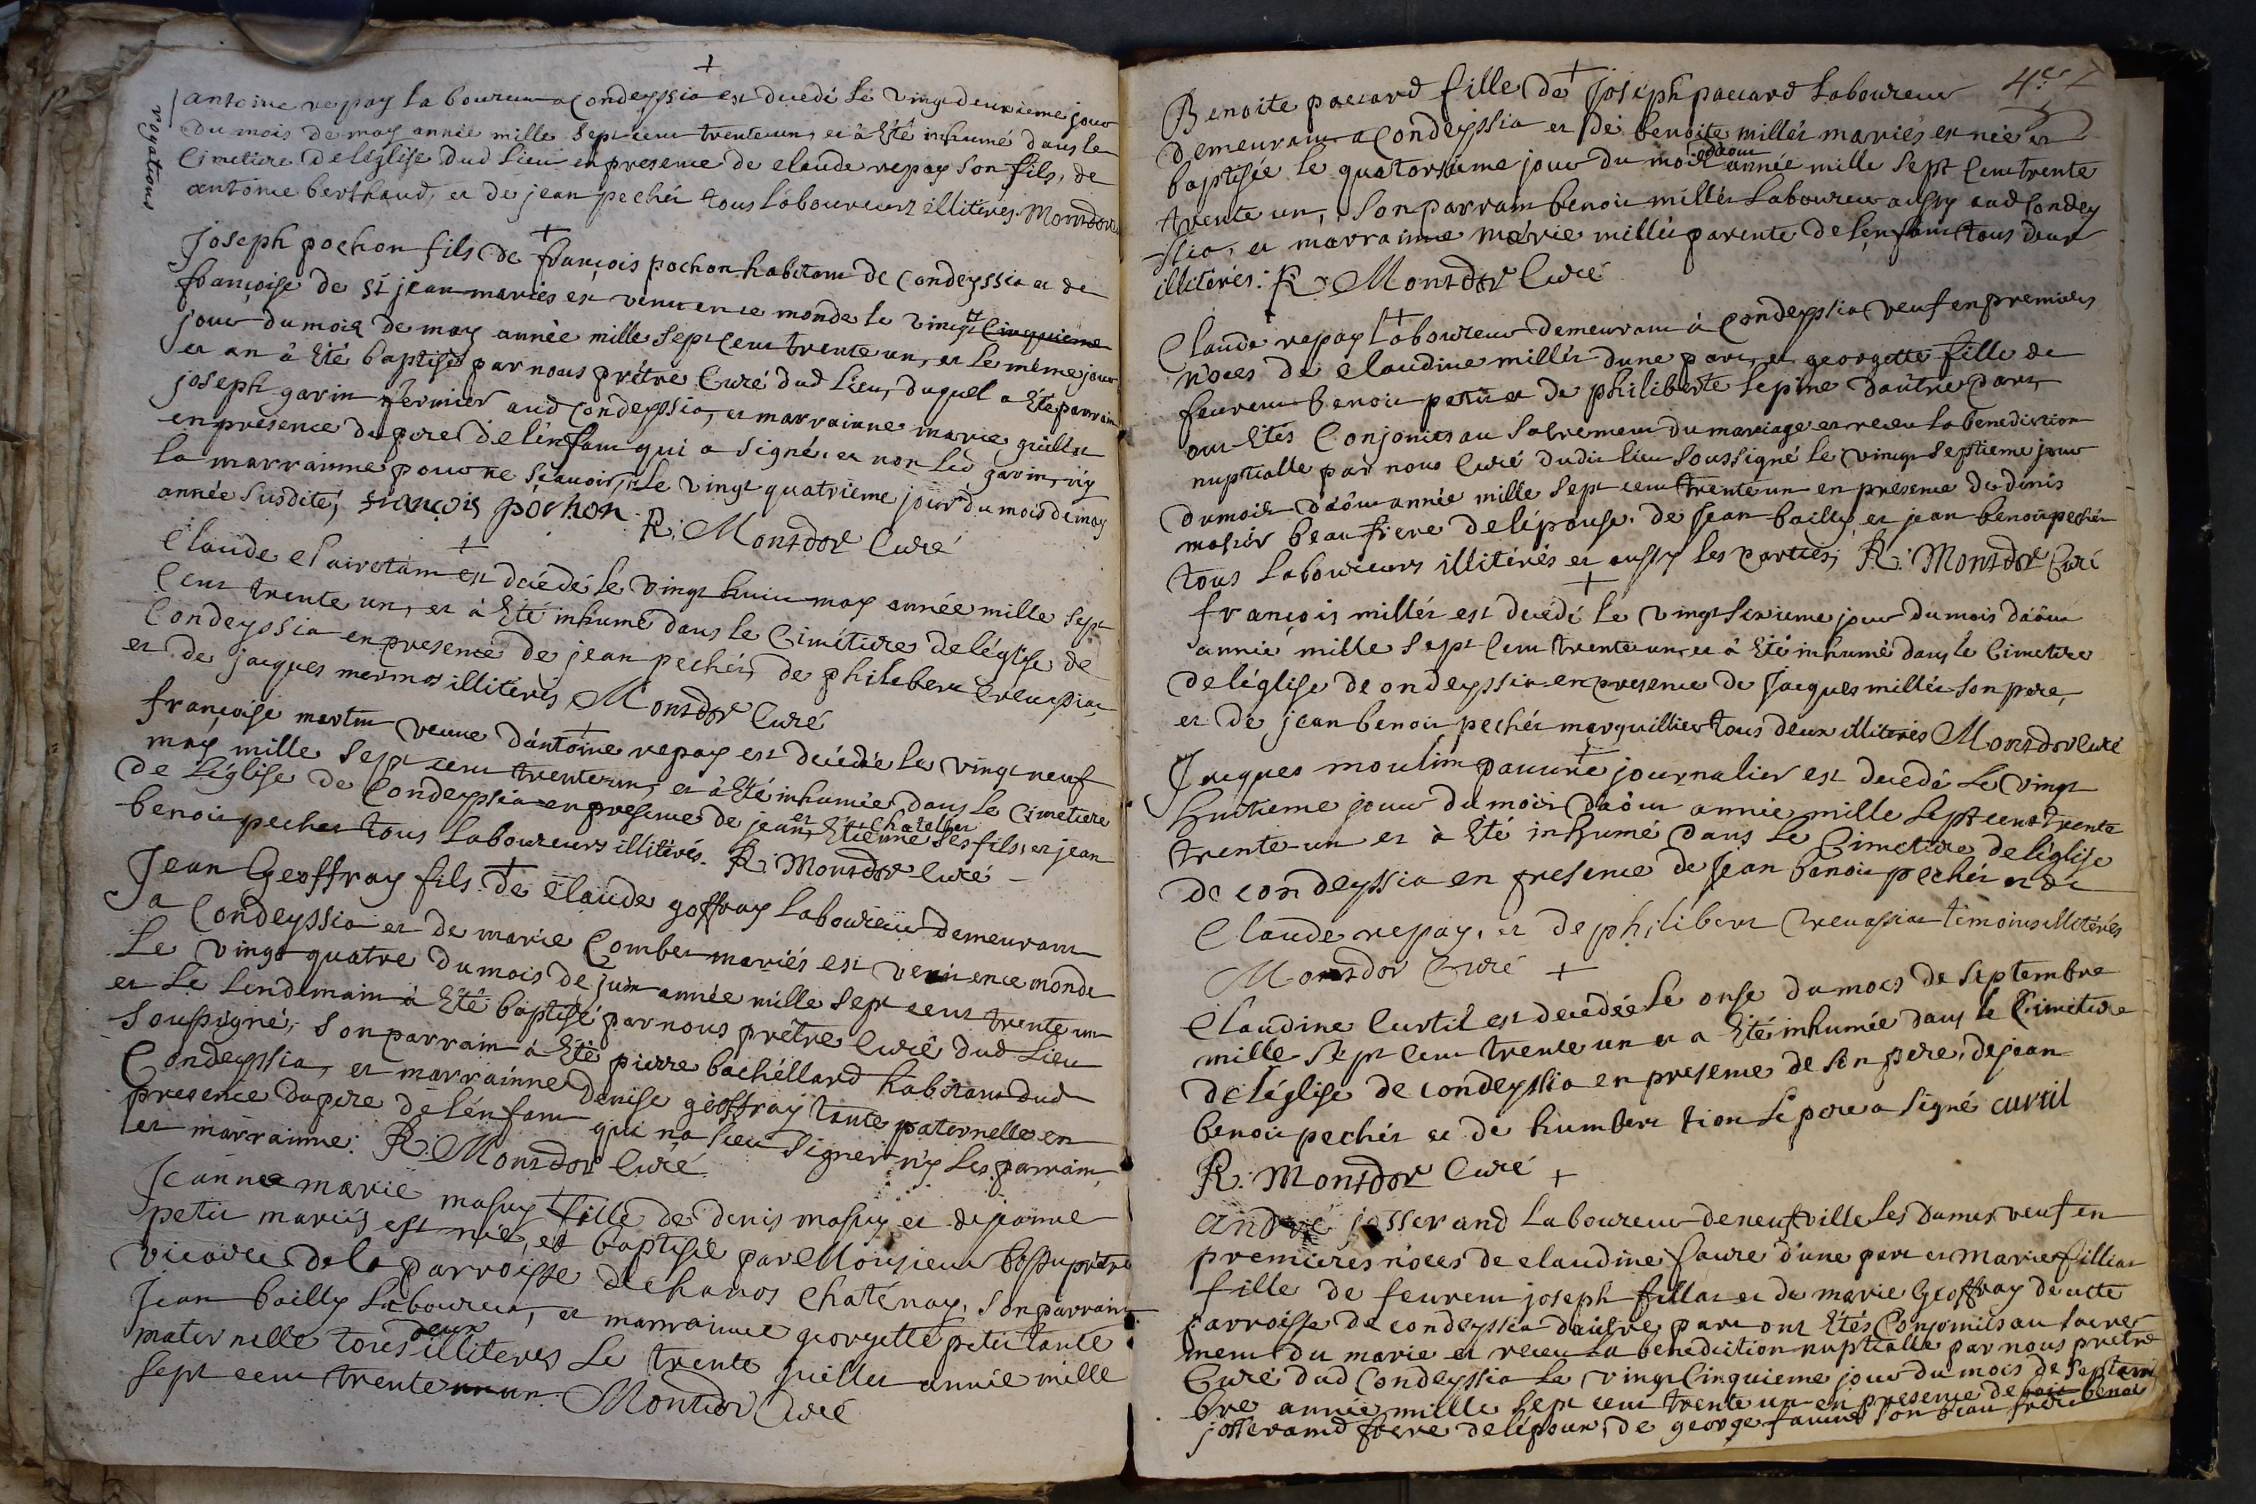 +
rogations
antoine repay laboureur a Condeyssia est decedé le vingt deuxième jour
du mois de may année mille sept cent trente un, et à Eté inhumé dans le
Cimetiere de léglise dud lieu en presence de claude repay son fils, de
antoine berthaud, et de jean pechér tous laboureurs illitérés. Montdor
+
joseph pochon fils de françois pochon habitant de Condeyssia et de
françoise de st jean mariés est venu en ce monde le vingt Cinquieme
jour du mois de may année mille sept cent trente un, et le même jour
et an à Eté baptisé par nous prêtre Curé dud lieu, duquel a Eté parrain
joseph garin fermier aud Condeyssia, et marrainne marie guillot
en presence du pere de lénfant qui a signé, et non led garin, ny
la marrainne pour ne sçavoir, le vingt quatrieme jour du mois de may
année susdite; françois pochon R: Montdor Curé
+
Claude Clairetam est décédé le vingt huit may année mille sept
Cent trente un, et à Eté inhumé dans le Cimétiere de léglise de
Condeyssia en presence de jean pechér, de philibert Crevassiat
et de jacques mermet illitérés Montdor Curé
+
françoise martin veuve dántoine repay est decédée le vingt neuf
may mille sept cent trente un, et à Eté inhumée dans le Cimetiere
de Léglise de Condeyssia en presence de jean, et Etienne chateller ses fils, et jean
benoit pecher tous laboureurs illitérés. R: Montdor Curé
+
Jean Geoffray fils de Claude goffray laboureur demeurant
a Condeyssia et de marie Combet mariés est venu en ce monde
Le vingt quatre du mois de juin année mille sept cent trente un
et Le Lendemain à Eté baptisé par nous prêtre Curé dud Lieu
soussigné, Son parrain à Eté pierre bachéllard habitant dud
Condeyssia, et marrainne denise géoffray tante paternelle en
presence du pere de lénfant qui na sceu signer ny les parrain,
et marrainne: R: Montdor Curé
+
Jeanne marie masuy fille de denis masuy et de jeanne
petit mariés est née, et baptisée par Monsieur bossu prêtre
vicaire de la parroisse de chanos Chaténay, son parrain
Jean bailly laboureur, et marrainne georgette petit tante
maternelle tous deux illiteres Le trente juillet année mille
sept cent trente un. Montdor Curé
4e
+
Benoite paccard fille de Joseph paccard laboureur
demeurant a Condeyssia et de benoite millér mariés est née et
baptisée le quatorsième jour du mois daout année mille sept Cent trente
trente un, son parrain benoit millér laboureur aussy aud Condey
ssia, et marrainne marie millér parente de lénfant tous deux
illitérés: R: Montdor Curé
+
Claude repay laboureur demeurant à Condeyssia veuf en premiers
nôces de claudine millér dune part, et georgette fille de
feu rent benoit petit et de philiberte lepine dautre part,
ont Etés Conjoints au sacrement du mariage et receu la benediction
nuptialle par nous Curé dudit lieu soussigné le vingt septieme jour
du mois dáôut année mille sept cent trente un en presence de denis
masuir beaufrere de lépouse, de jean bailly, et jean benoit pechér
tous laboureurs illitérés et aussy les parties; R: Montdor Curé
+
françois millér est decédé le vingt sixieme jour du mois dáôut
année mille sept Cent trente un, et à Eté inhumé dans le Cimetiere
de léglise de ondeyssia en presence de Jacques millér son pere,
et de jean benoit pechér marguillier tous deux illitérés Montdor Curé
+
Jacques moulin pauvre journalier est decédé le vingt
huitieme jour du mois dáôut année mille sept cent trente
trente un et à Eté inhumé dans le Cimetiere de léglise
de condeyssia en presence de jean benoit pechér et de
Claude repay, et de philibert Crevassiat témoins illitérés
Montdor Curé
+
Claudine Curtil est decédée le onse du mois de septembre
mille sept Cent trente un et a Eté inhumée dans le Cimetiere
de léglise de condeyssia en presence de son pere, de jean
benoit pechér et de humbert tion le pere a signé curtil
R: Montdor Curé
+
andré josserand laboureur de neufville les dames veuf en
premieres nôces de claudine faure d'une part et marie filliat
fille de feu rent joseph fillat et de marie Geoffray de cette
parroisse de condeyssia dáutre part ont Etés Conjoints au sacre
ment du marie et receu la benediction nuptialle par nous prêtre
Curé dud Condeyssia le vingt Cinquieme jour du mois de septem
bre année mille sept cent trente un en presence de benoit
josserand frere de lépoux, de george faure son beau frere